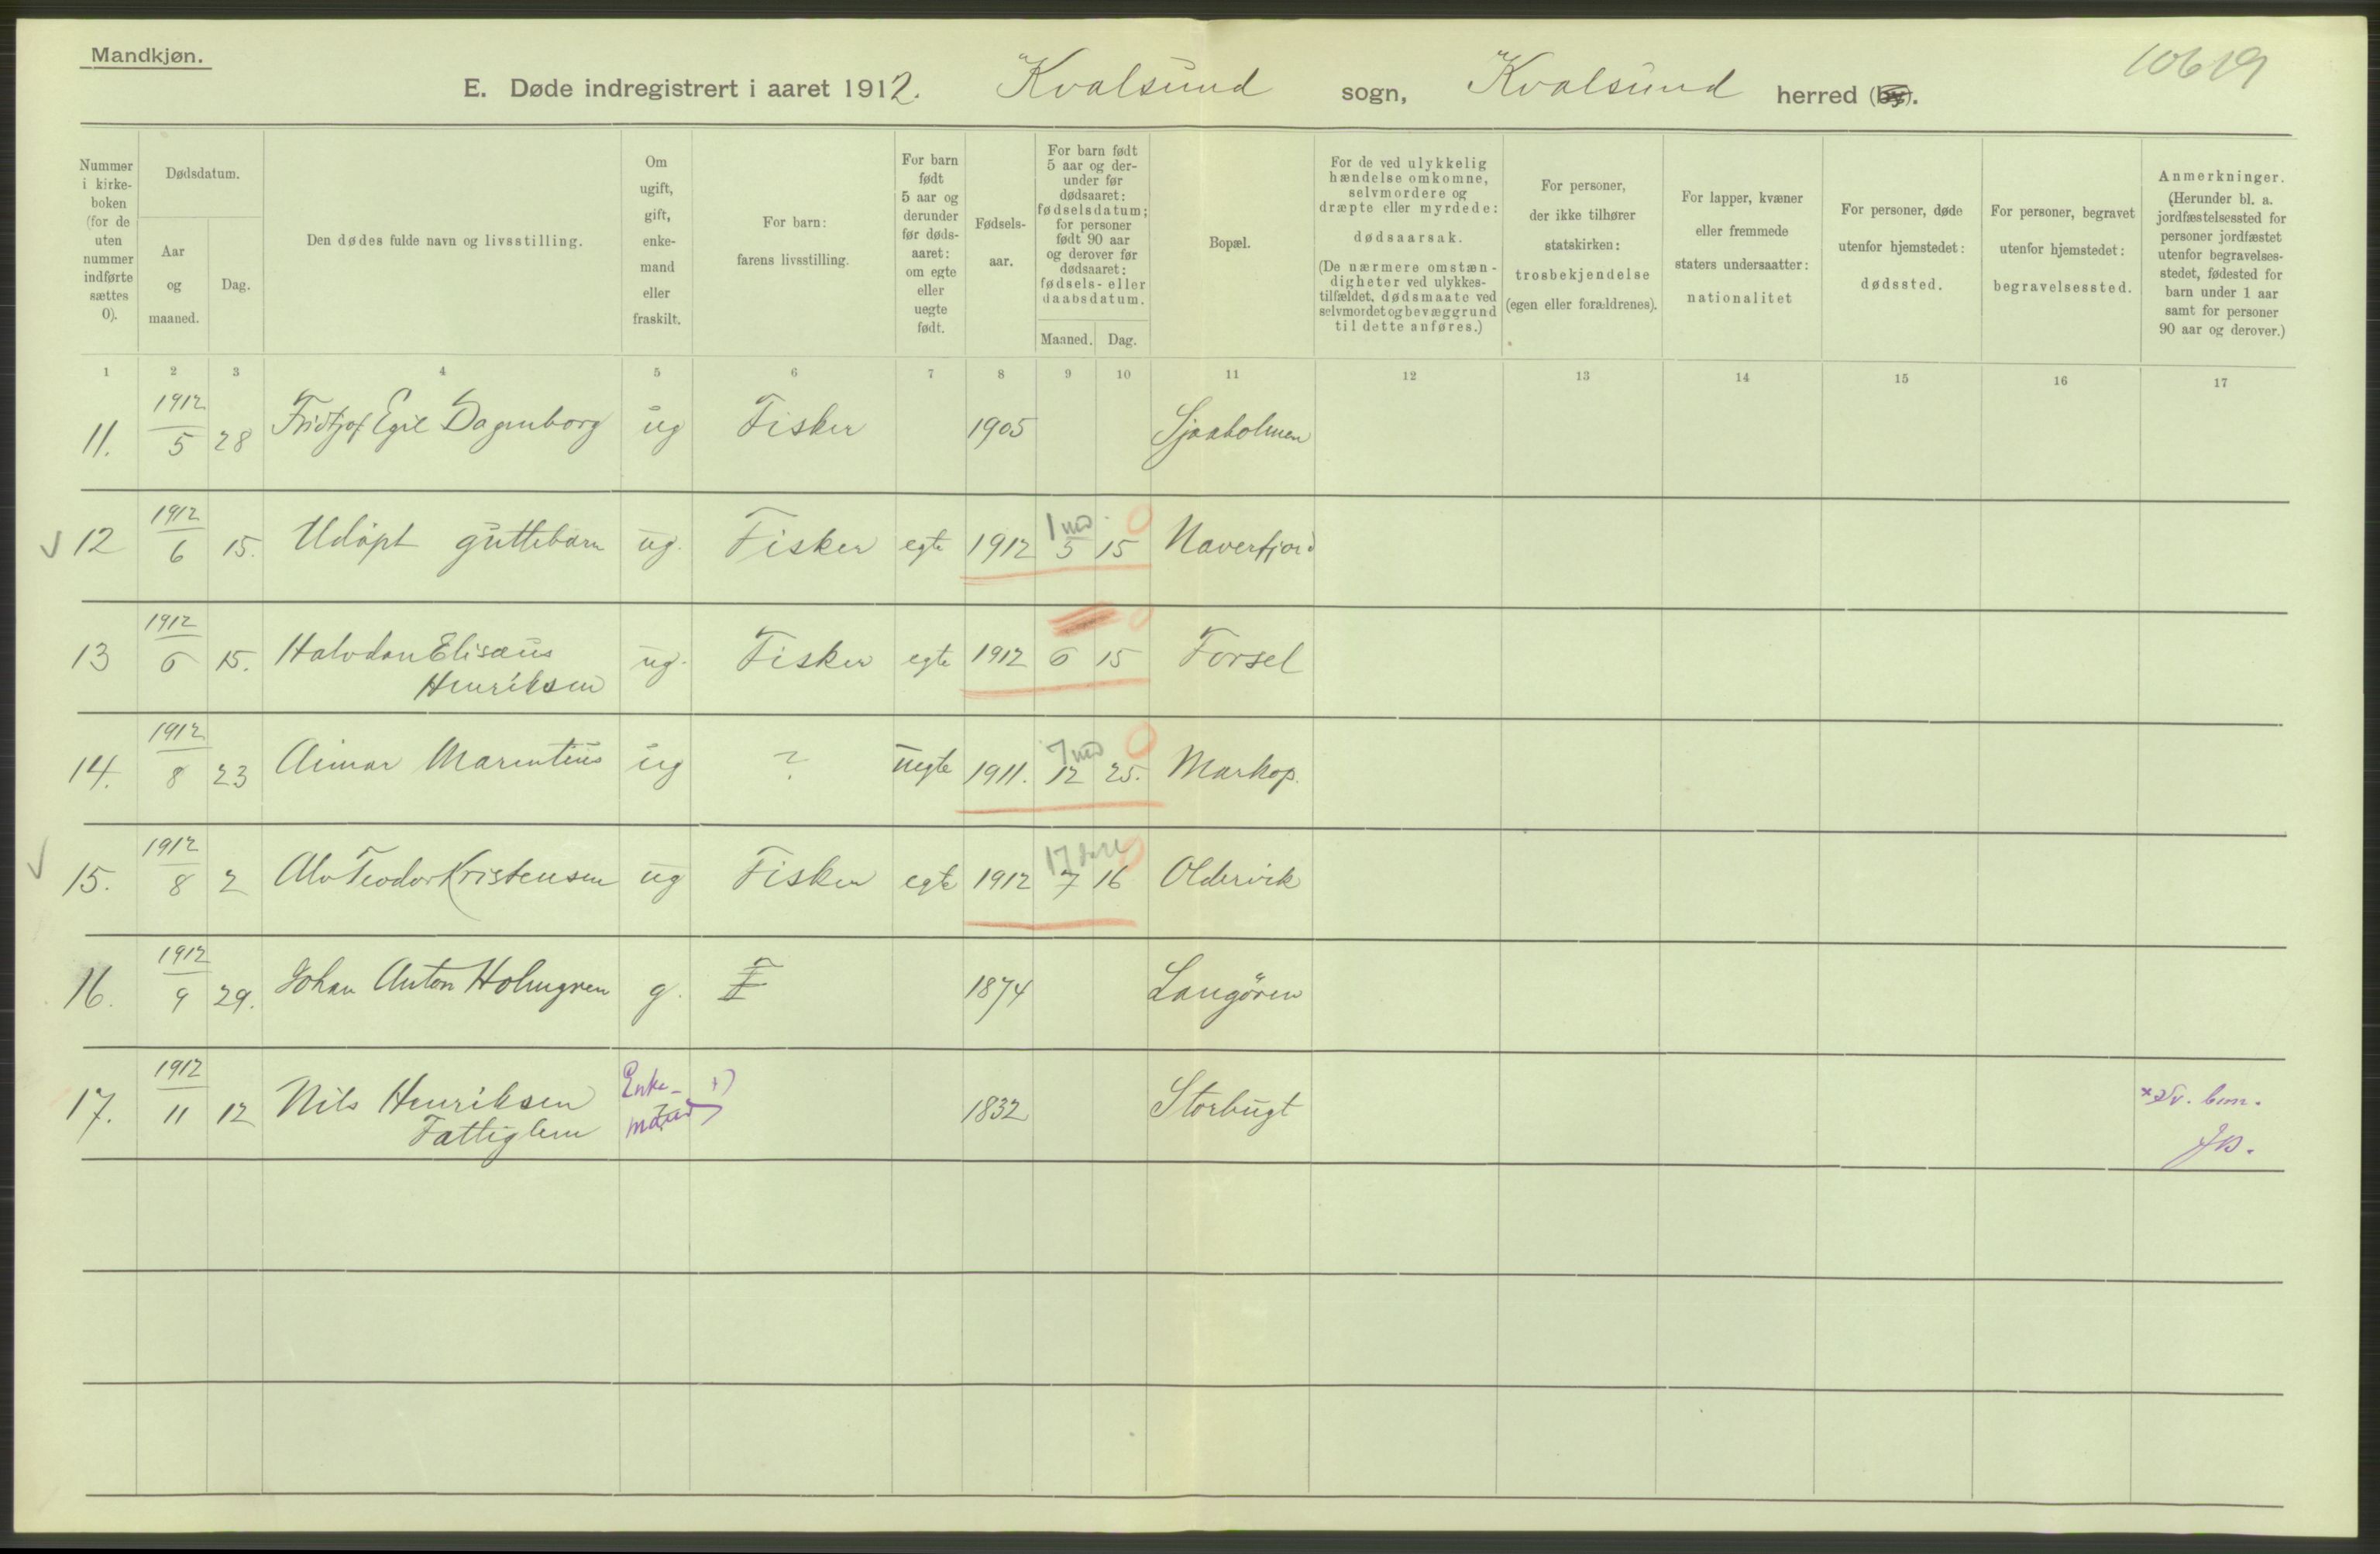 Mandkjøn.
10619
E. Døde indregistrert i aaret 1912. Kvalsund sogn, Kvalsund herred (by).
Nummer i kirke- boken (for de uten nummer indførte sættes 0).
Dødsdatum.
Aar og maaned.
Dag.
Den dødes fulde navn og livsstilling.
Om ugift, gift, enke- mand eller fraskilt.
For barn: farens livsstilling.
For barn født 5 aar og derunder før døds- aaret: om egte eller uegte født.
Fødsels- aar.
For barn født 5 aar og der- under før dødsaaret: fødselsdatum; for personer født 90 aar og derover før dødsaaret: fødsels- eller daabsdatum.
Maaned. Dag.
Bopæl.
For de ved ulykkelig hændelse omkomne, selvmordere og dræpte eller myrdede: dødsaarsak. (De nærmere omstæn- digheter ved ulykkes- tilfældet, dødsmaate ved selvmordet og bevæggrund til dette anføres.)
For personer, der ikke tilhører statskirken: trosbekjendelse (egen eller forældrenes).
For lapper, kvæner eller fremmede staters undersaatter: nationalitet
For personer, døde utenfor hjemstedet: dødssted.
For personer, begravet utenfor hjemstedet: begravelsessted.
Anmerkninger. (Herunder bl. a. jordfæstelsessted for personer jordfæstet utenfor begravelses- stedet, fødested for barn under 1 aar samt for personer 90 aar og derover.)
1 2 3 4 5 6 7 8 9 10 11 12 13 14 15 16 17
11. 1912 5 28 Fridtjof Egil Dagenborg ug Fisker 1905 Sjaaholmen
12 1912 6 15. Udøpt guttebarn ug. Fisker egte 1912 1 md 5 15 0 Naverfjord
13 1912 6 15. Halvdan Elisæus
Henriksen ug. Fisker egte 1912 6 15 0 Forsel
14. 1912 8 23 Aimar Marentius ug ? uegte 1911. 7 md 12 25. 0 Markop.
15. 1912 8 2 Alv Teodor Kristensen ug Fisker egte 1912 17 dage 7 16 0 Oldervik
16. 1912 9 29. Johan Anton Holmgren g. F 1874 Langøren
17. 1912 11 12 Nils Henriksen
Fattiglem Enke- mand x) 1832 Storbugt